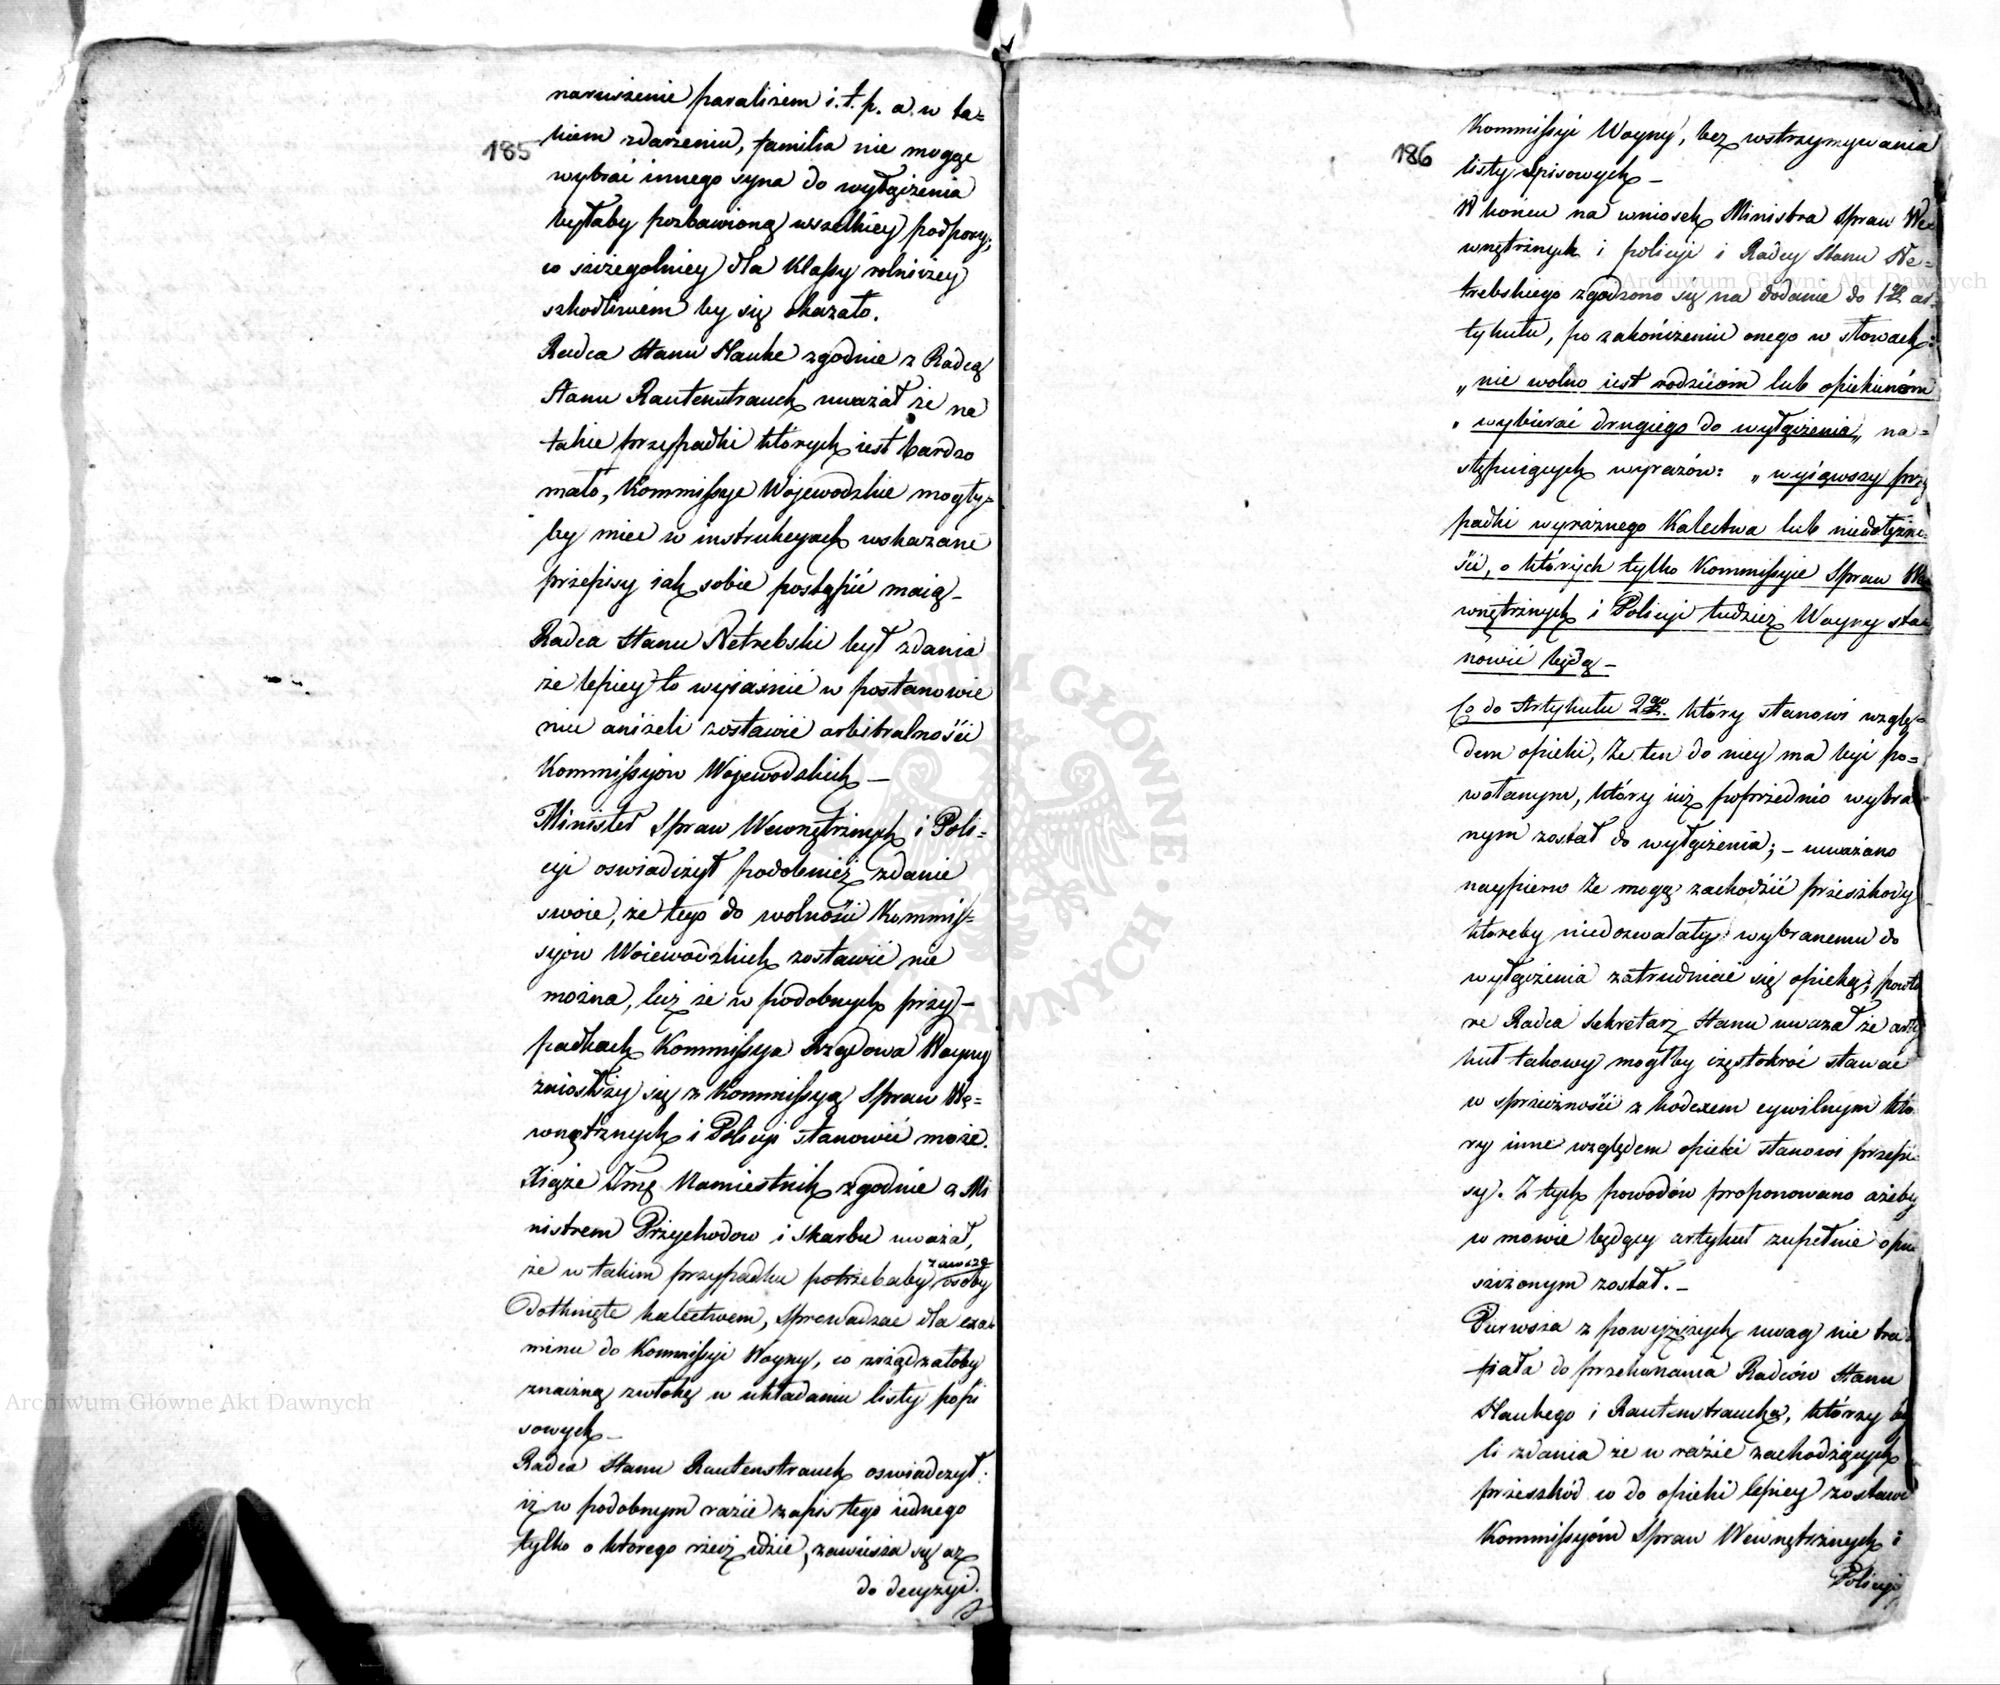 185
naruszenie paraliżem i. t. p. a w ta=
kiem zdarzeniu, familia nie mogąc
wybrać innego syna do wyłączenia
byłaby pozbawioną wszelkiey podpory;
co szczególniey dla Klassy rolniczey
szkodliwém by się okazało.
Radca Stanu Hauke zgodnie z Radcą
Stanu Rautenstrauch uważał że na
takie przypadki których iest bardzo
mało, Kommissye Wojewodzkie mogły=
by miec w instrukcyach wskazane
przepisy iak sobie postąpić maią –
Radca Stanu Netrebski był zdania
że lepiey to wyiaśnić w postanowie
niu aniżeli zostawić arbitralności
Kommissyow Wojewodzkich –
Minister Spraw Wewnętrznych i Poli=
cyi oswiadczył podobnież zdanie
swoie, że tego do wolności Kommis=
syów Woiewodzkich zostawić nie
można, lecz że w podobnych przy –
padkach Kommissya Rządowa Woyny
zniosłszy się z Kommissyą Spraw We=
wnętrznych i Policyi stanowić może.
Xiąże Jmć Namiestnik zgodnie z Mi
nistrem Przychodow i Skarbu uważał,
że w takim przypadku potrzebaby zawsze osoby
dotknięte kalectwem, sprowadzać dla exa
minu do Kommissyi Woyny, co zrządzałoby
znaczną zwłokę w układaniu listy popi
sowych –
Radca Stanu Rautenstrauch oswiadczył:
iż w podobnym razie zapis tego iednego
tylko o ktorego rzecz idzie, zawiesza się aż
do decyzyi
186
Kommissyi Woyny, bez wstrzymywania
listy Spisowych –
W końcu na wniosek Ministra Spraw We=
wnętrznych i policyi i Radcy Stanu Ne=
trebskiego zgodzono się na dodanie do 1go ar=
tykułu, po zakończeniu onego w słowach:
„ nie wolno iest rodzicom lub opiekunóm
„ wybierać drugiego do wyłączenia„ na=
stępuiących wyrazów: „ wyiąwszy przy
padki wyraźnego Kalectwa lub niedołężno=
ści, o których tylko Kommissyie Spraw We
wnętrznych i Policyi tudzież Woyny sta
nowić będą –
Co do Artykułu 2go. który stanowi wzglę=
dem opieki, że ten do niey ma być po=
wołanym, który iuż poprzednio wybra
nym został do wyłączenia; – uważano
naypierw że mogą zachodzić przeszkody
któreby niedozwalały wybranemu do
wyłączenia zatrudniać się opieką; powtó
re Radca Sekretarz Stanu uważał że arty
kuł takowy mogłby częstokroć stawać
w sprzeczności z kodexem cywilnym któ
ry inne względem opieki stanowi przepi
sy. Z tych powodów proponowano ażeby
w mowie będący artykuł zupełnie opu
szczonym został. –
Pierwsza z powyższych uwag nie tra
fiała do przekonania Radców Stanu
Haukego i Rautenstraucha, którzy by
li zdania że w razie zachodzących
przeszkód co do opieki lepiey zostawić
Kommissyóm Spraw Wewnętrznych i
Policyi
Archiwum Główne Akt Dawnych
Archiwum Główne Akt Dawnych